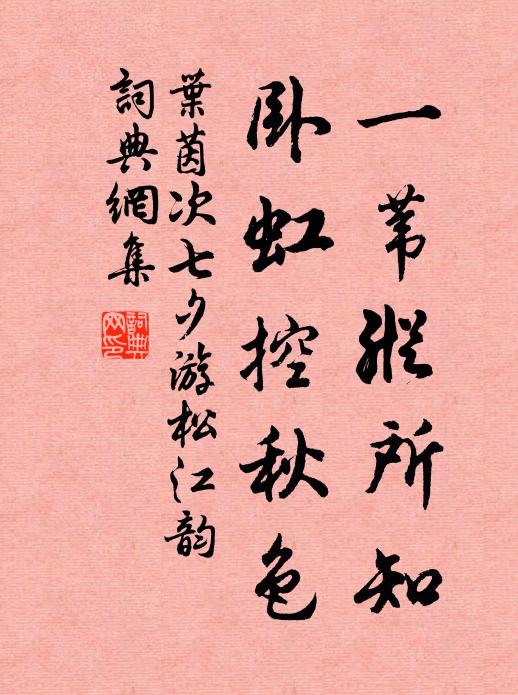 一葦縱所知
卧虹控秋色
葉茵次七夕游松江韻
詞典網集
詞典网印